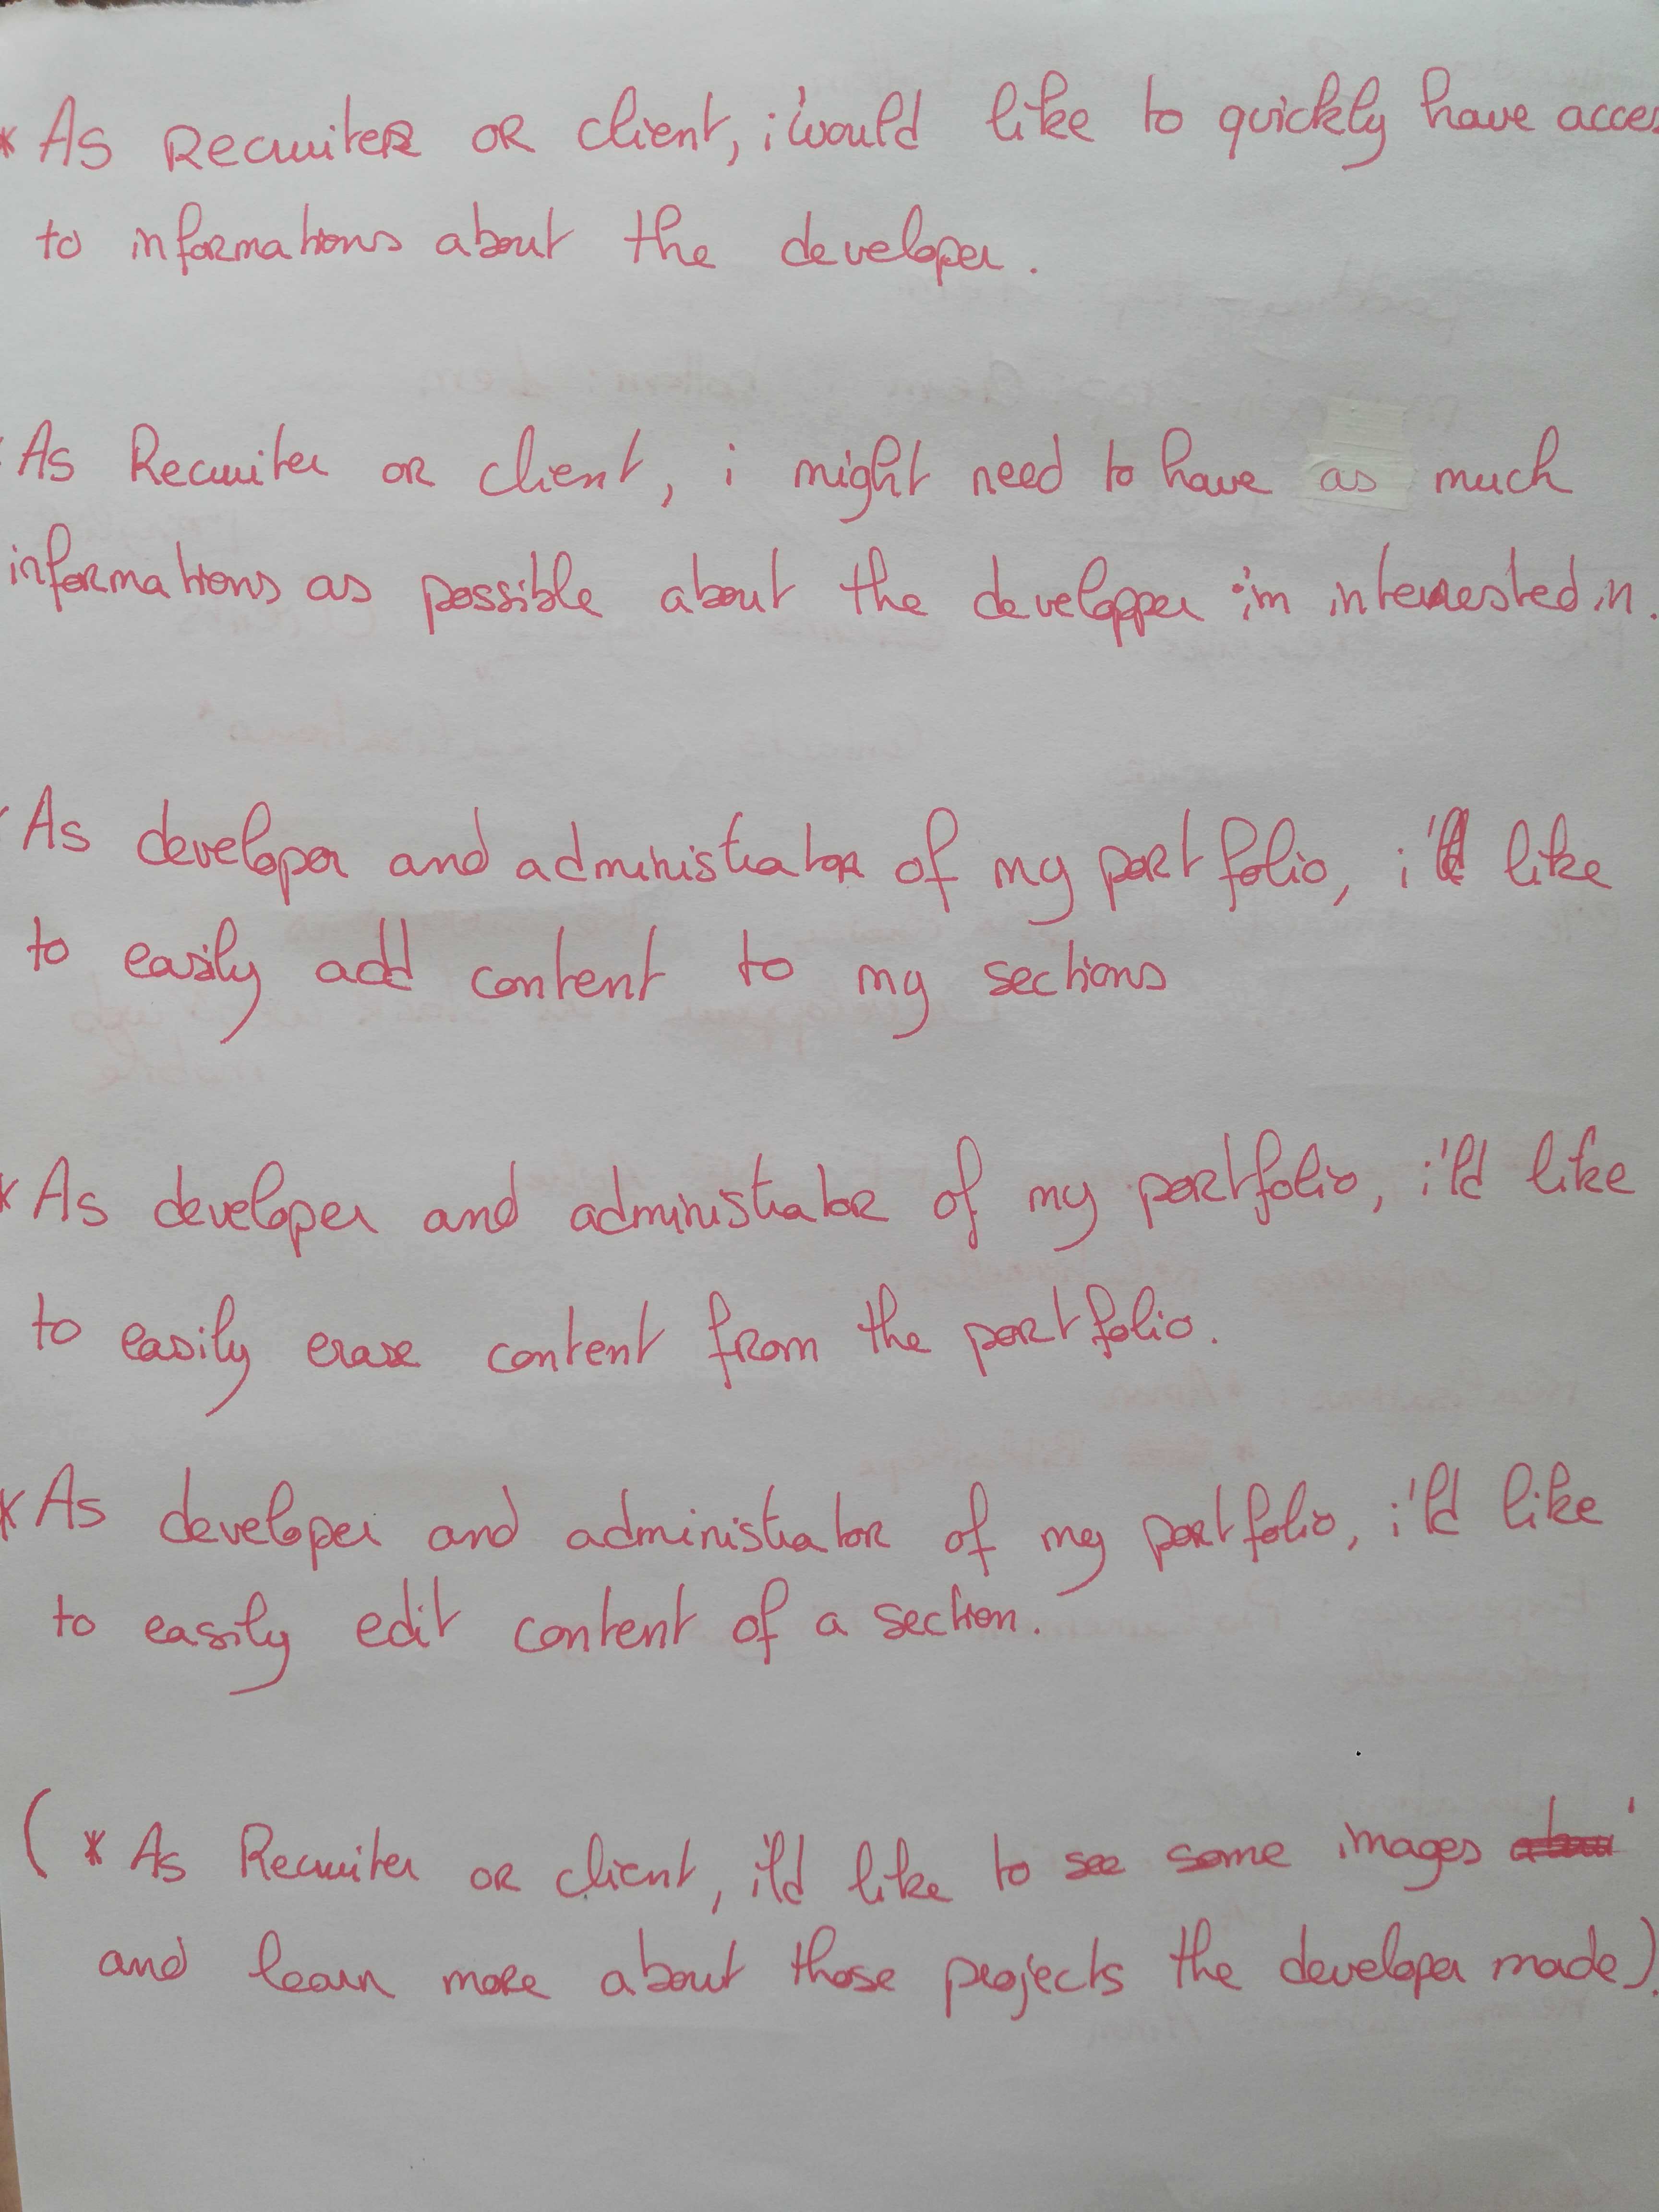 * As Recruiter or client, i would like to quickly have acces
to informations about the developer.
As Recruiter or client, i might need to have as much
informations as possible about the developper i'm interested in.
As developer and administrator of my portfolio, i'd like
to easily add content to my sections
* As developer and administrator of my portfolio, i'ld like
to easily erase content from the portfolio.
* As developer and administrator of my portfolio, i'ld like
to easily edit content of a section.
( * As Recruiter or client, i'ld like to see some images
and learn more about those projects the developer made).